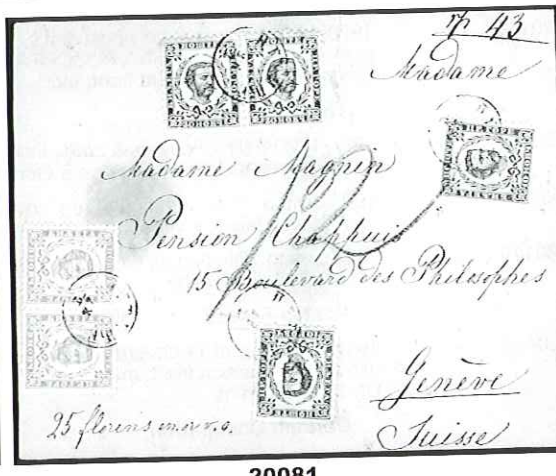 43
Madame
Madame Magnin
Pension Chappuis
15 Boulevard des Philosophes
Genève
25 florens
Suisse
20081